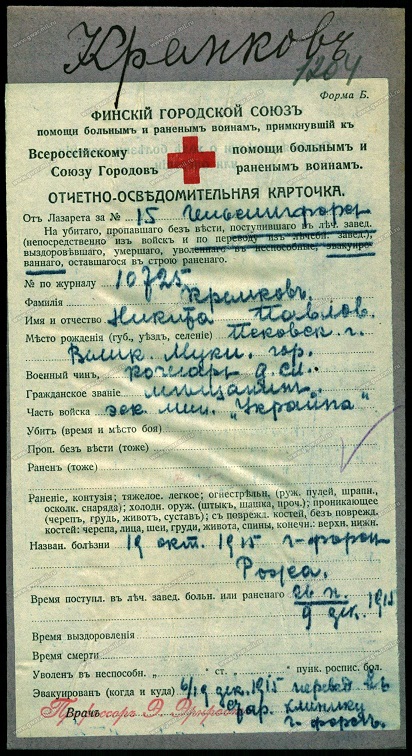 Крамковъ
1284
Форма Б.
ФИНСКІЙ ГОРОДСКОЙ СОЮЗЪ
помощи больнымъ и раненымъ воинамъ, примкнувшій къ
Всероссійскому помощи больнымъ и
Союзу Городовъ раненымъ воинамъ.
ОТЧЕТНО-ОСВѢДОМИТЕЛЬНАЯ КАРТОЧКА.
Отъ Лазарета за № 15 Гельсингфорсъ
На убитаго, пропавшаго безъ вѣсти, поступившаго въ лѣч. завед.
(непосредственно изъ войскъ и по переводу изъ лѣчебн. завед.),
выздоровѣвшаго, умершаго, уволеннаго въ неспособные, эвакуиро-
ваннаго, оставшагося въ строю раненаго.
№ по журналу 10725
Фамилія Крамковъ
Имя и отчество Никита Павлов.
Мѣсто рожденія (губ., уѣздъ, селеніе) Псковск. г.
Велик. Луки. гор.
Военный чинъ, кочегаръ
Гражданское званіе мѣщанинъ
Часть войска эск. мин. „Украйна"
Убитъ (время и мѣсто боя)
Проп. безъ вѣсти (тоже)
Раненъ (тоже)
Раненіе, контузія; тяжелое. легкое; огнестрѣльн. (руж. пулей, шрапн.,
осколк. снаряда); холодн. оруж. (штыкъ, шашка, проч.); проникающее
(черепъ, грудь, животъ, суставъ); съ поврежд. костей, безъ поврежд.
костей: черепа, лица, шеи, груди, живота, спины, конечн.: верхн. нижн.
Назван. болѣзни 19 окт. 1915
Рожа.
Время поступл. въ лѣч. завед. больн. или раненаго
9 дек. 1915
Время выздоровленія
Время смерти
Уволенъ въ неспособн. „ " ст. пунк. роспис. бол.
Эвакуированъ (когда и куда) 6/19 дек. 1915 перевед. въ
Врачъ Профессоръ клинику